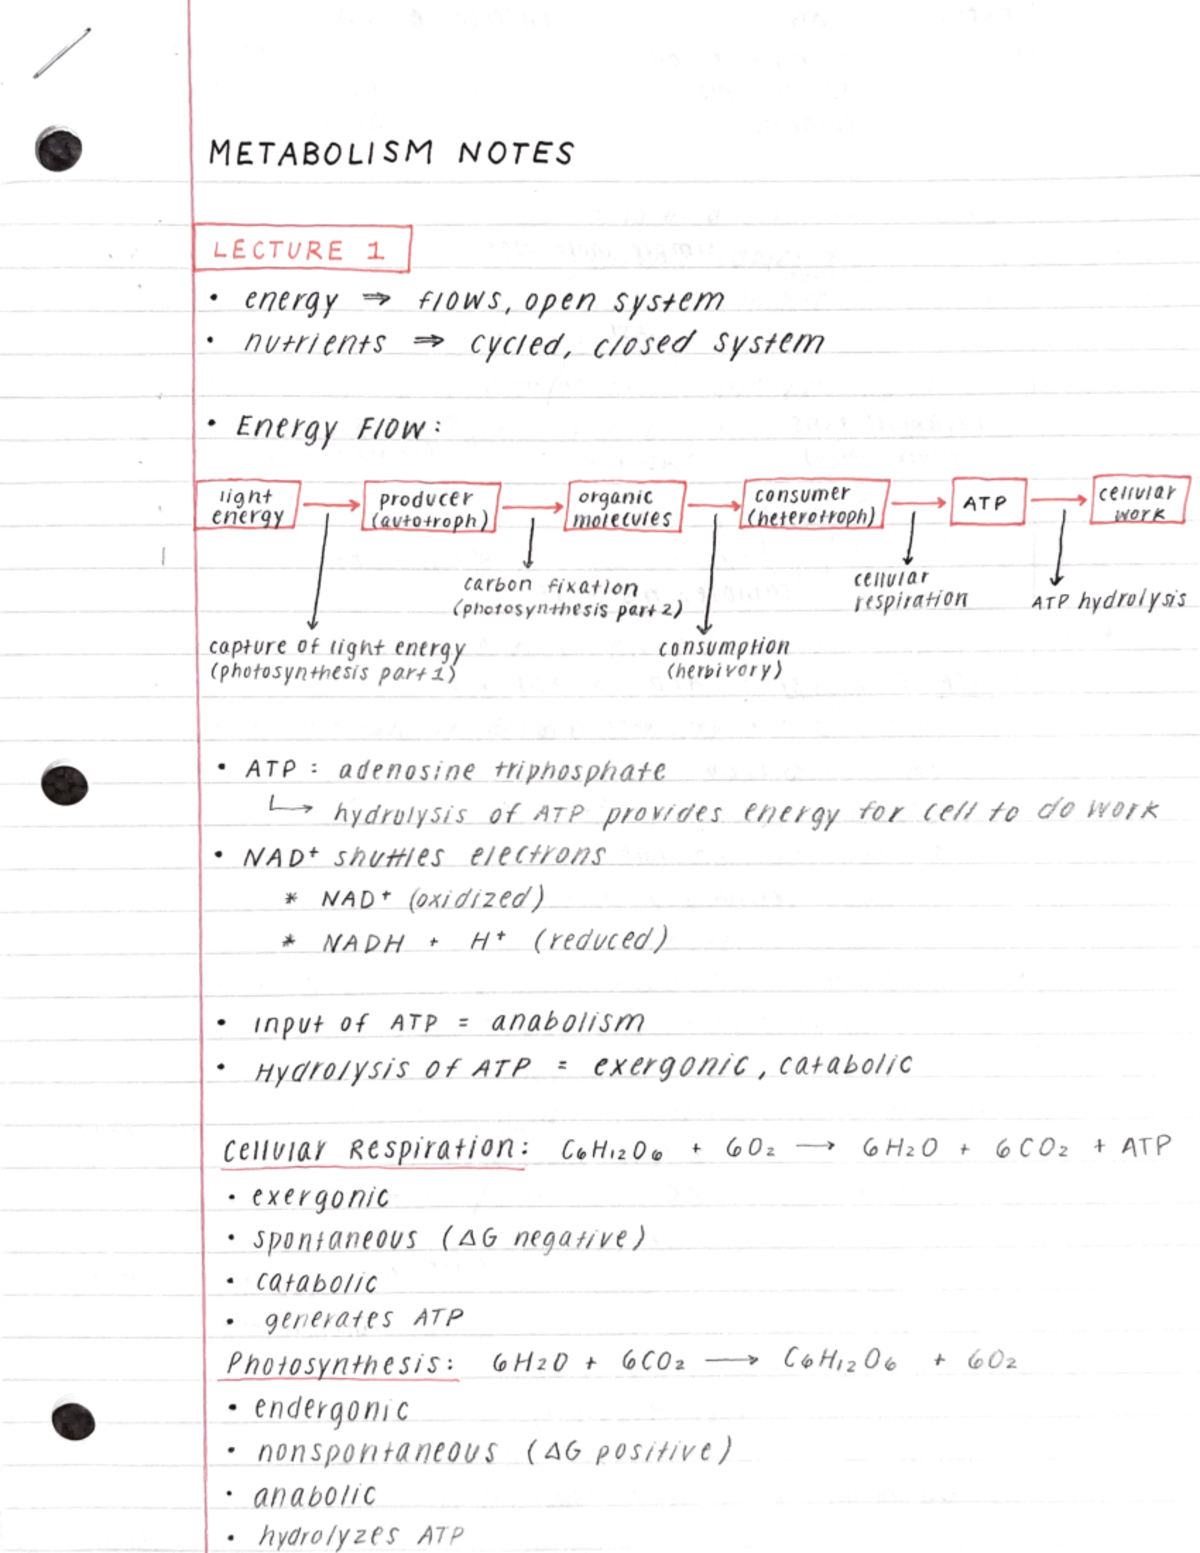 METABOLISM NOTES
LECTURE 1
• energy ⇒ flows, open system
• nutrients ⇒ cycled, closed system
• Energy Flow:
light energy → producer (autotroph) → organic molecules → consumer (heterotroph) → ATP → cellular work
capture of light energy
(photosynthesis part 1)
carbon fixation
(photosynthesis part 2)
consumption
(herbivory)
cellular
respiration
ATP hydrolysis
• ATP: adenosine triphosphate
↳ hydrolysis of ATP provides energy for cell to do work
• NAD⁺ shuttles electrons
* NAD⁺ (oxidized)
* NADH + H⁺ (reduced)
• input of ATP = anabolism
• Hydrolysis of ATP = exergonic, catabolic
Cellular Respiration: C₆H₁₂O₆ + 6O₂ → 6H₂O + 6CO₂ + ATP
• exergonic
• spontaneous (ΔG negative)
• catabolic
• generates ATP
Photosynthesis: 6H₂O + 6CO₂ → C₆H₁₂O₆ + 6O₂
• endergonic
• nonspontaneous (ΔG positive)
• anabolic
• hydrolyzes ATP